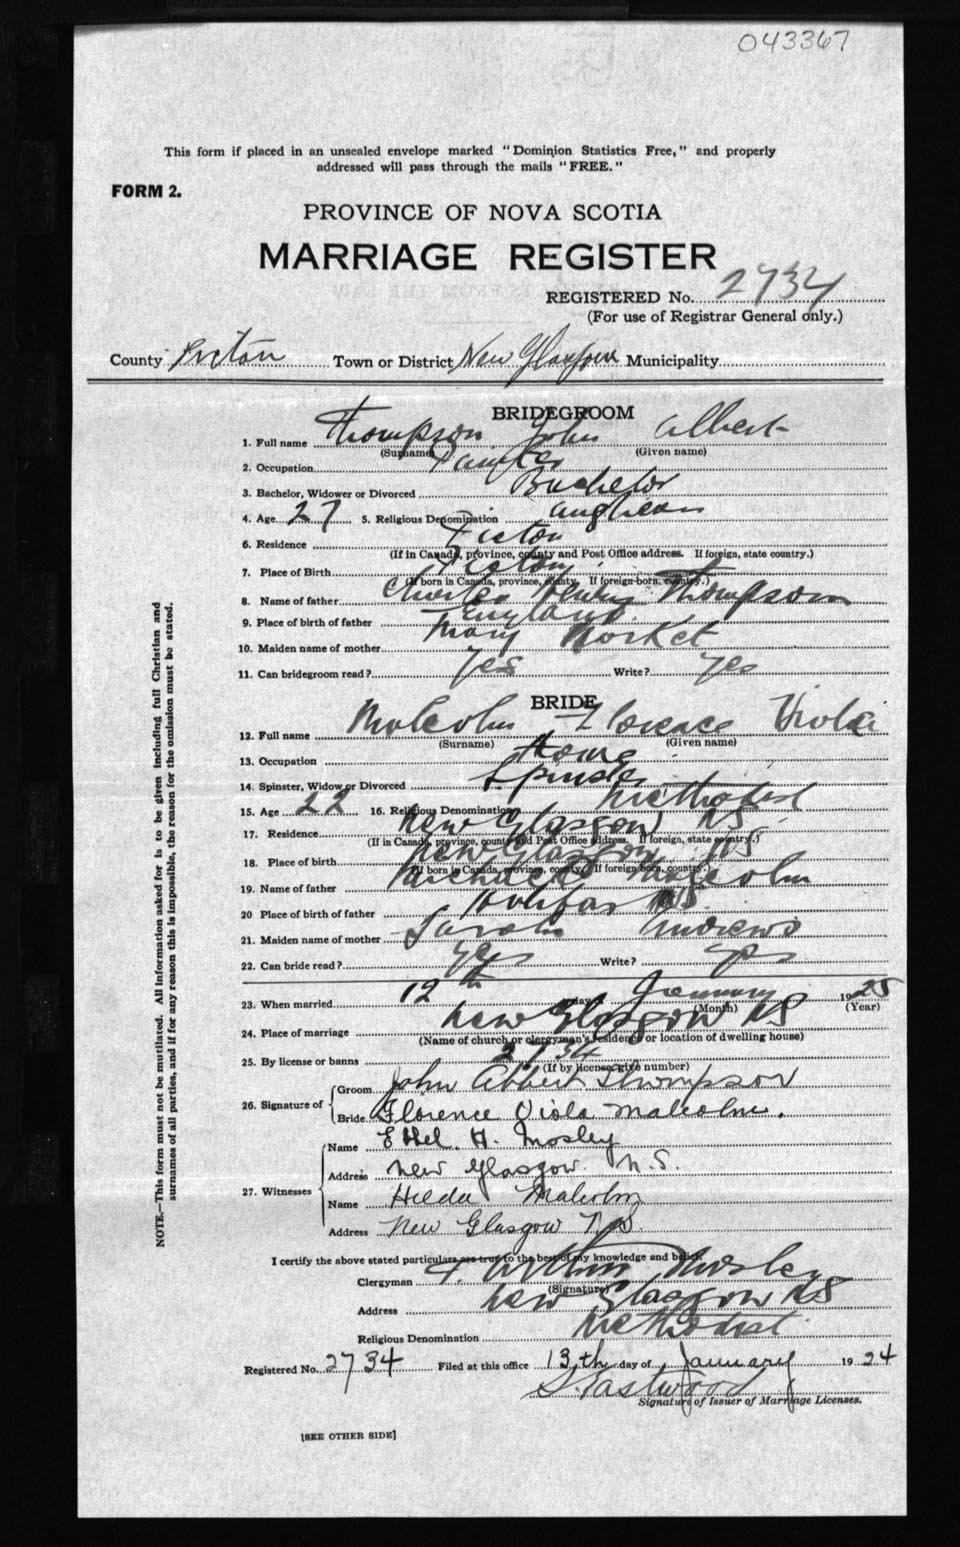 043367
This form if placed in an unsealed envelope marked "Dominion Statistics Free," and properly
addressed will pass through the mails "FREE."
FORM 2.
PROVINCE OF NOVA SCOTIA
MARRIAGE REGISTER
REGISTERED No. 2734
(For use of Registrar General only.)
County Pictou Town or District New Glasgow Municipality
BRIDEGROOM
1. Full name Thompson John Albert
(Surname) (Given name)
2. Occupation Painter
3. Bachelor, Widower or Divorced Bachelor
4. Age 27 5. Religious Denomination Anglican
6. Residence Pictou
(If in Canada, province, county and Post Office address. If foreign, state country.)
7. Place of Birth Pictou
(If born in Canada, province, county. If foreign-born, country.)
8. Name of father Charles Henry Thompson
9. Place of birth of father England
10. Maiden name of mother Mary
11. Can bridegroom read? Yes Write? Yes
BRIDE
12. Full name Malcolm Florence Viola
(Surname) (Given name)
13. Occupation Home
14. Spinster, Widow or Divorced Spinster
15. Age 22 16. Religious Denomination Methodist
17. Residence New Glasgow NS
(If in Canada, province, county and Post Office address. If foreign, state country.)
18. Place of birth New Glasgow NS
(If born in Canada, province, county. If foreign born, country.)
19. Name of father Malcolm
20 Place of birth of father Halifax NS
21. Maiden name of mother Sarah Andrews
22. Can bride read? Yes Write? Yes
23. When married 12th day of January 1925
(Month) (Year)
24. Place of marriage New Glasgow NS
(Name of church or clergyman's residence or location of dwelling house)
25. By license or banns 2734
(If by license give number)
26. Signature of Groom John Albert Thompson
Bride Florence Viola Malcolm.
27. Witnesses Name Ethel. H. Mosley
Address New Glasgow. N.S.
Name Hilda Malcolm
Address New Glasgow N.S.
I certify the above stated particulars are true to the best of my knowledge and belief.
Clergyman Mosley
(Signature)
Address New Glasgow NS
Religious Denomination Methodist
Registered No. 2734 Filed at this office 13th day of January 1924
S. Eastwood
Signature of Issuer of Marriage Licenses.
[SEE OTHER SIDE]
NOTE.—This form must not be mutilated. All information asked for is to be given including full Christian and
surnames of all parties, and if for any reason this is impossible, the reason for the omission must be stated.